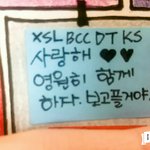 XSL BCC DT KS
사랑해 ♥♥
영원히 함께
하다. 보고플거야.